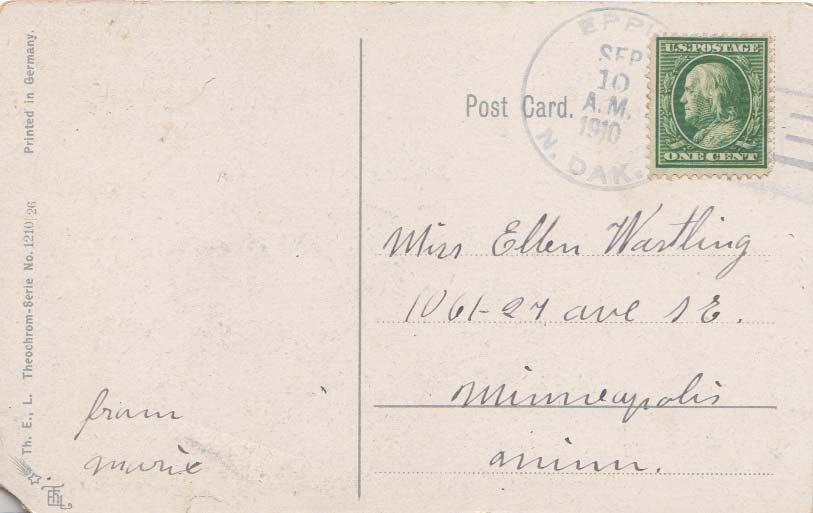 Printed in Germany.
Th. E., L. Theochrom-Serie No. 1210|26
Post Card.
SEP
10
A.M.
1910
N. DAK.
U.S. POSTAGE
ONE CENT
Miss Ellen Wartling
1061-27 ave S E.
Minneapolis
Minn.
from
Marie